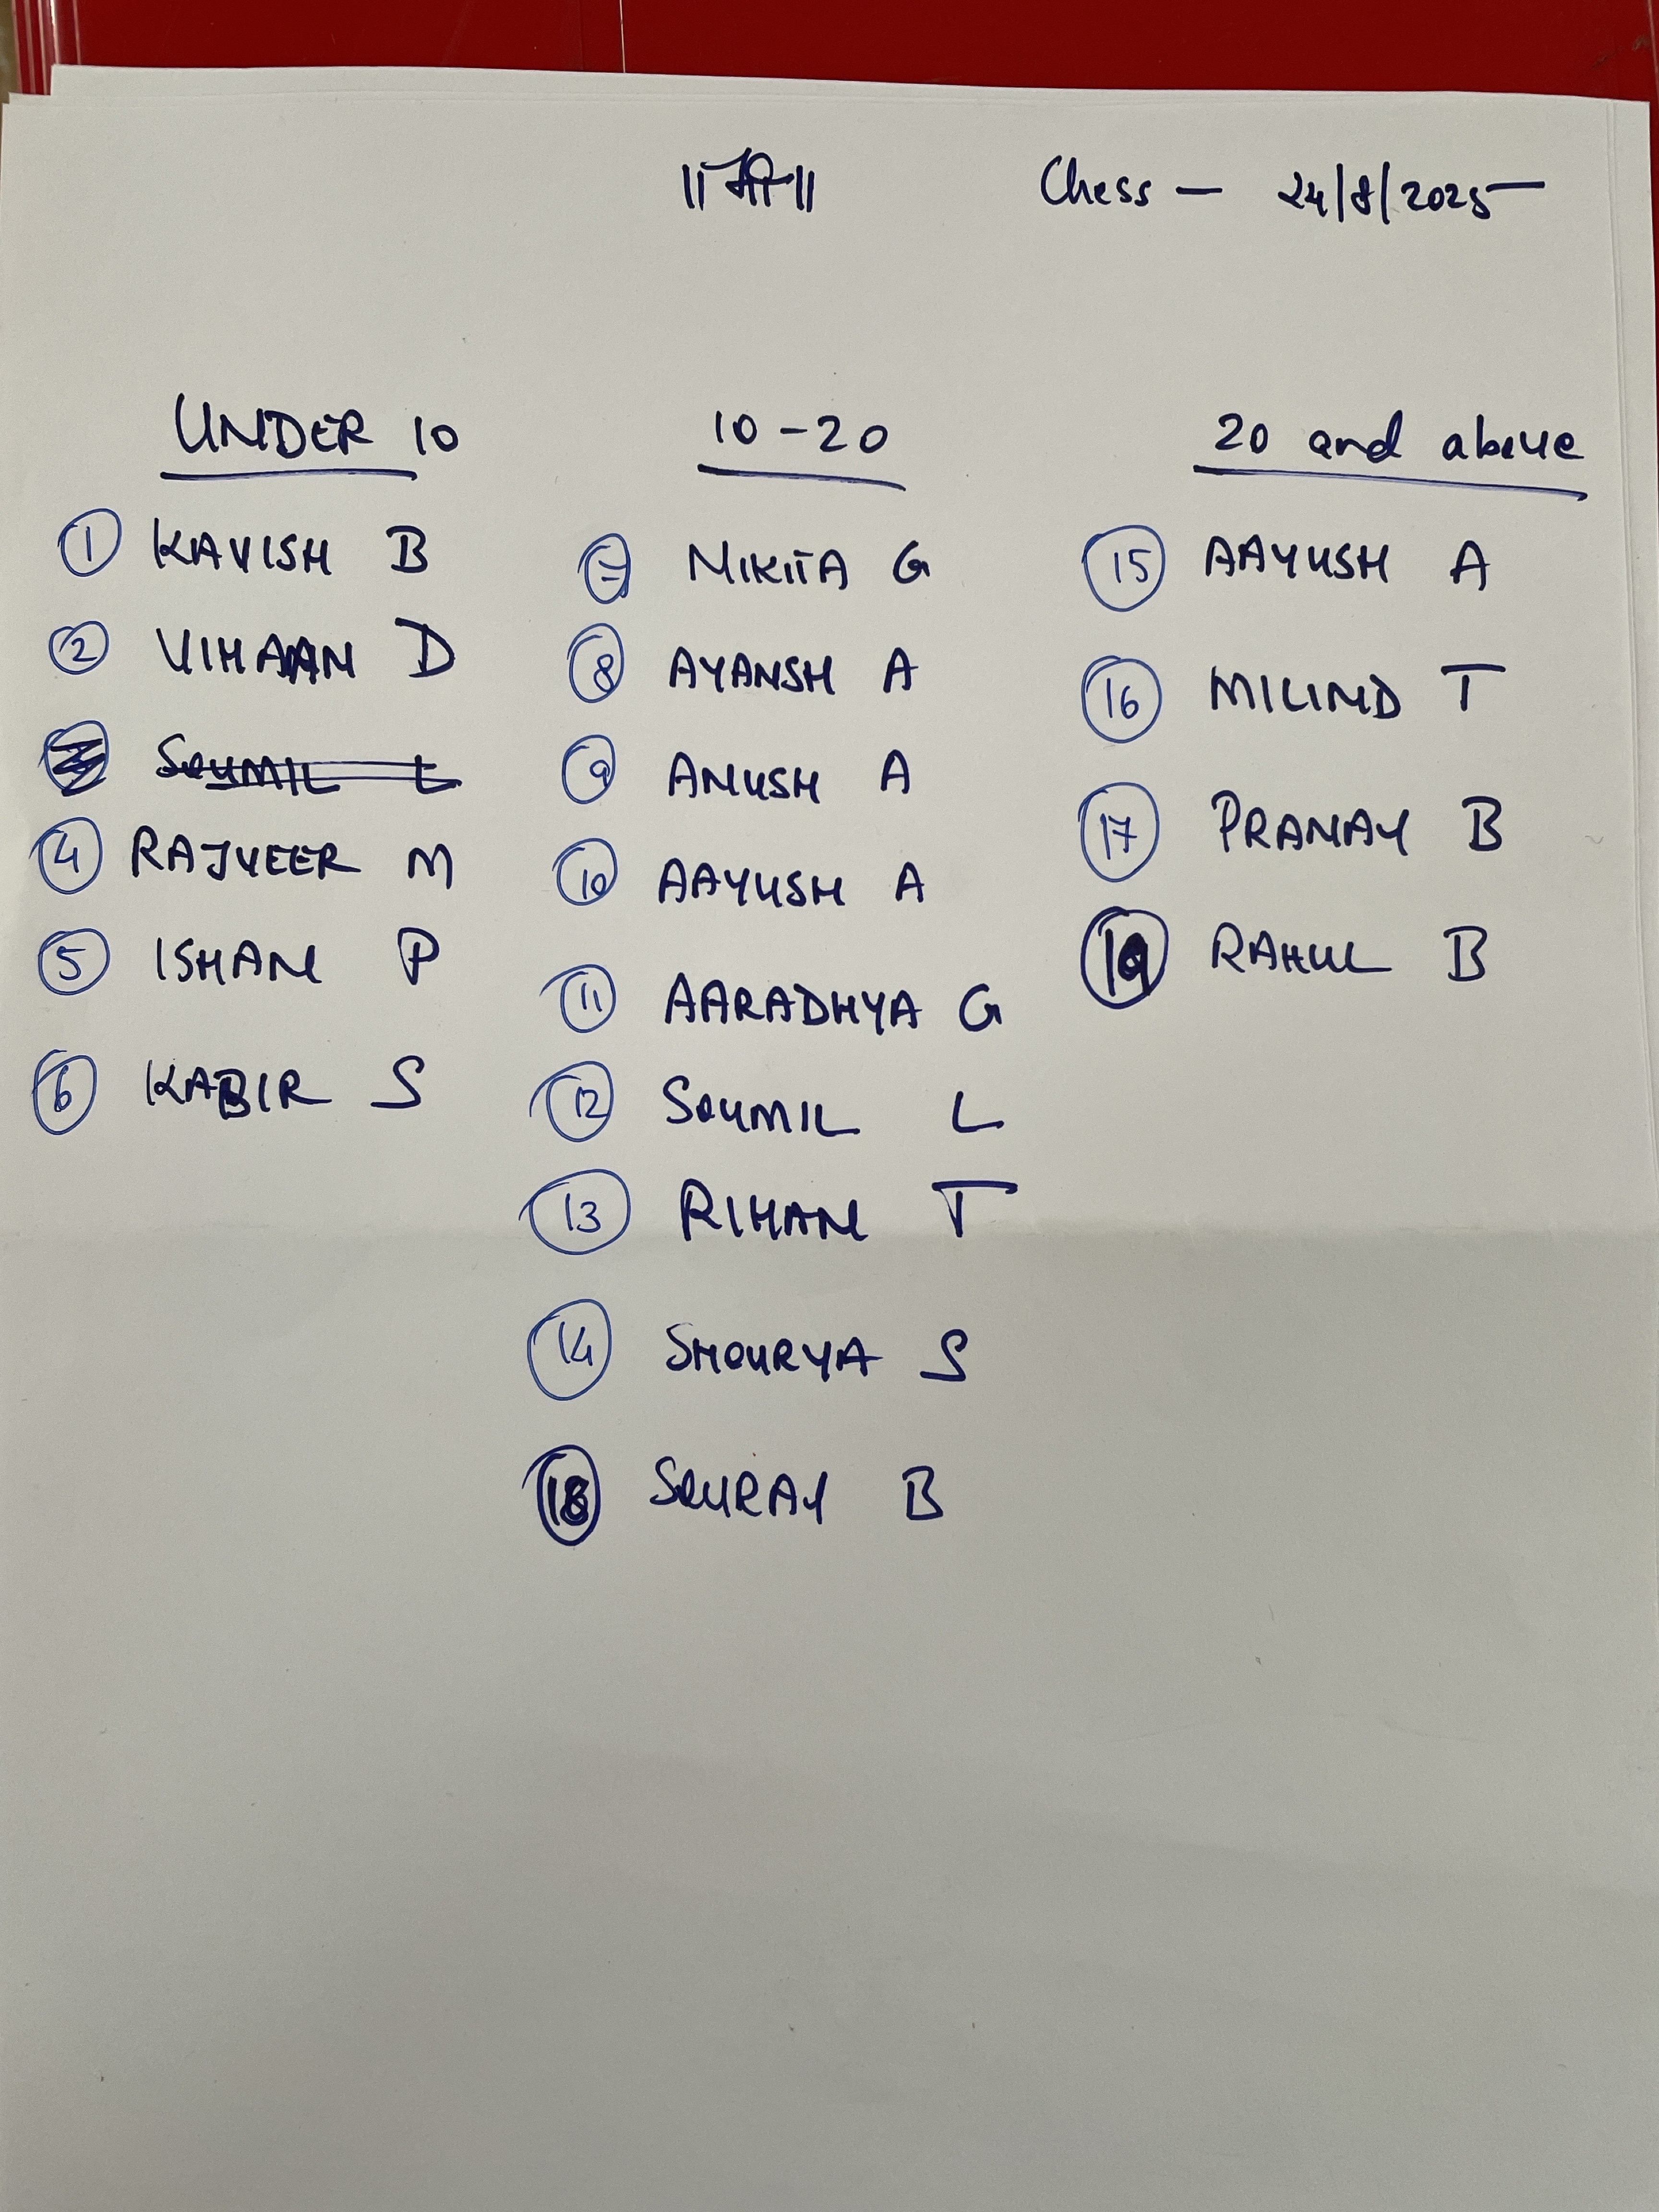 ॥श्री॥
Chess — 24/8/2025
UNDER 10
① KAVISH B
② VIHAAN D
SOUMIL L
④ RAJVEER M
⑤ ISHAN P
⑥ KABIR S
10-20
⑦ NIKITA G
⑧ AYANSH A
⑨ ANUSH A
⑩ AAYUSH A
⑪ AARADHYA G
⑫ SOUMIL L
⑬ RIHAN T
⑭ SHOURYA S
⑱ SOURAV B
20 and above
⑮ AAYUSH A
⑯ MILIND T
⑰ PRANAY B
⑲ RAHUL B